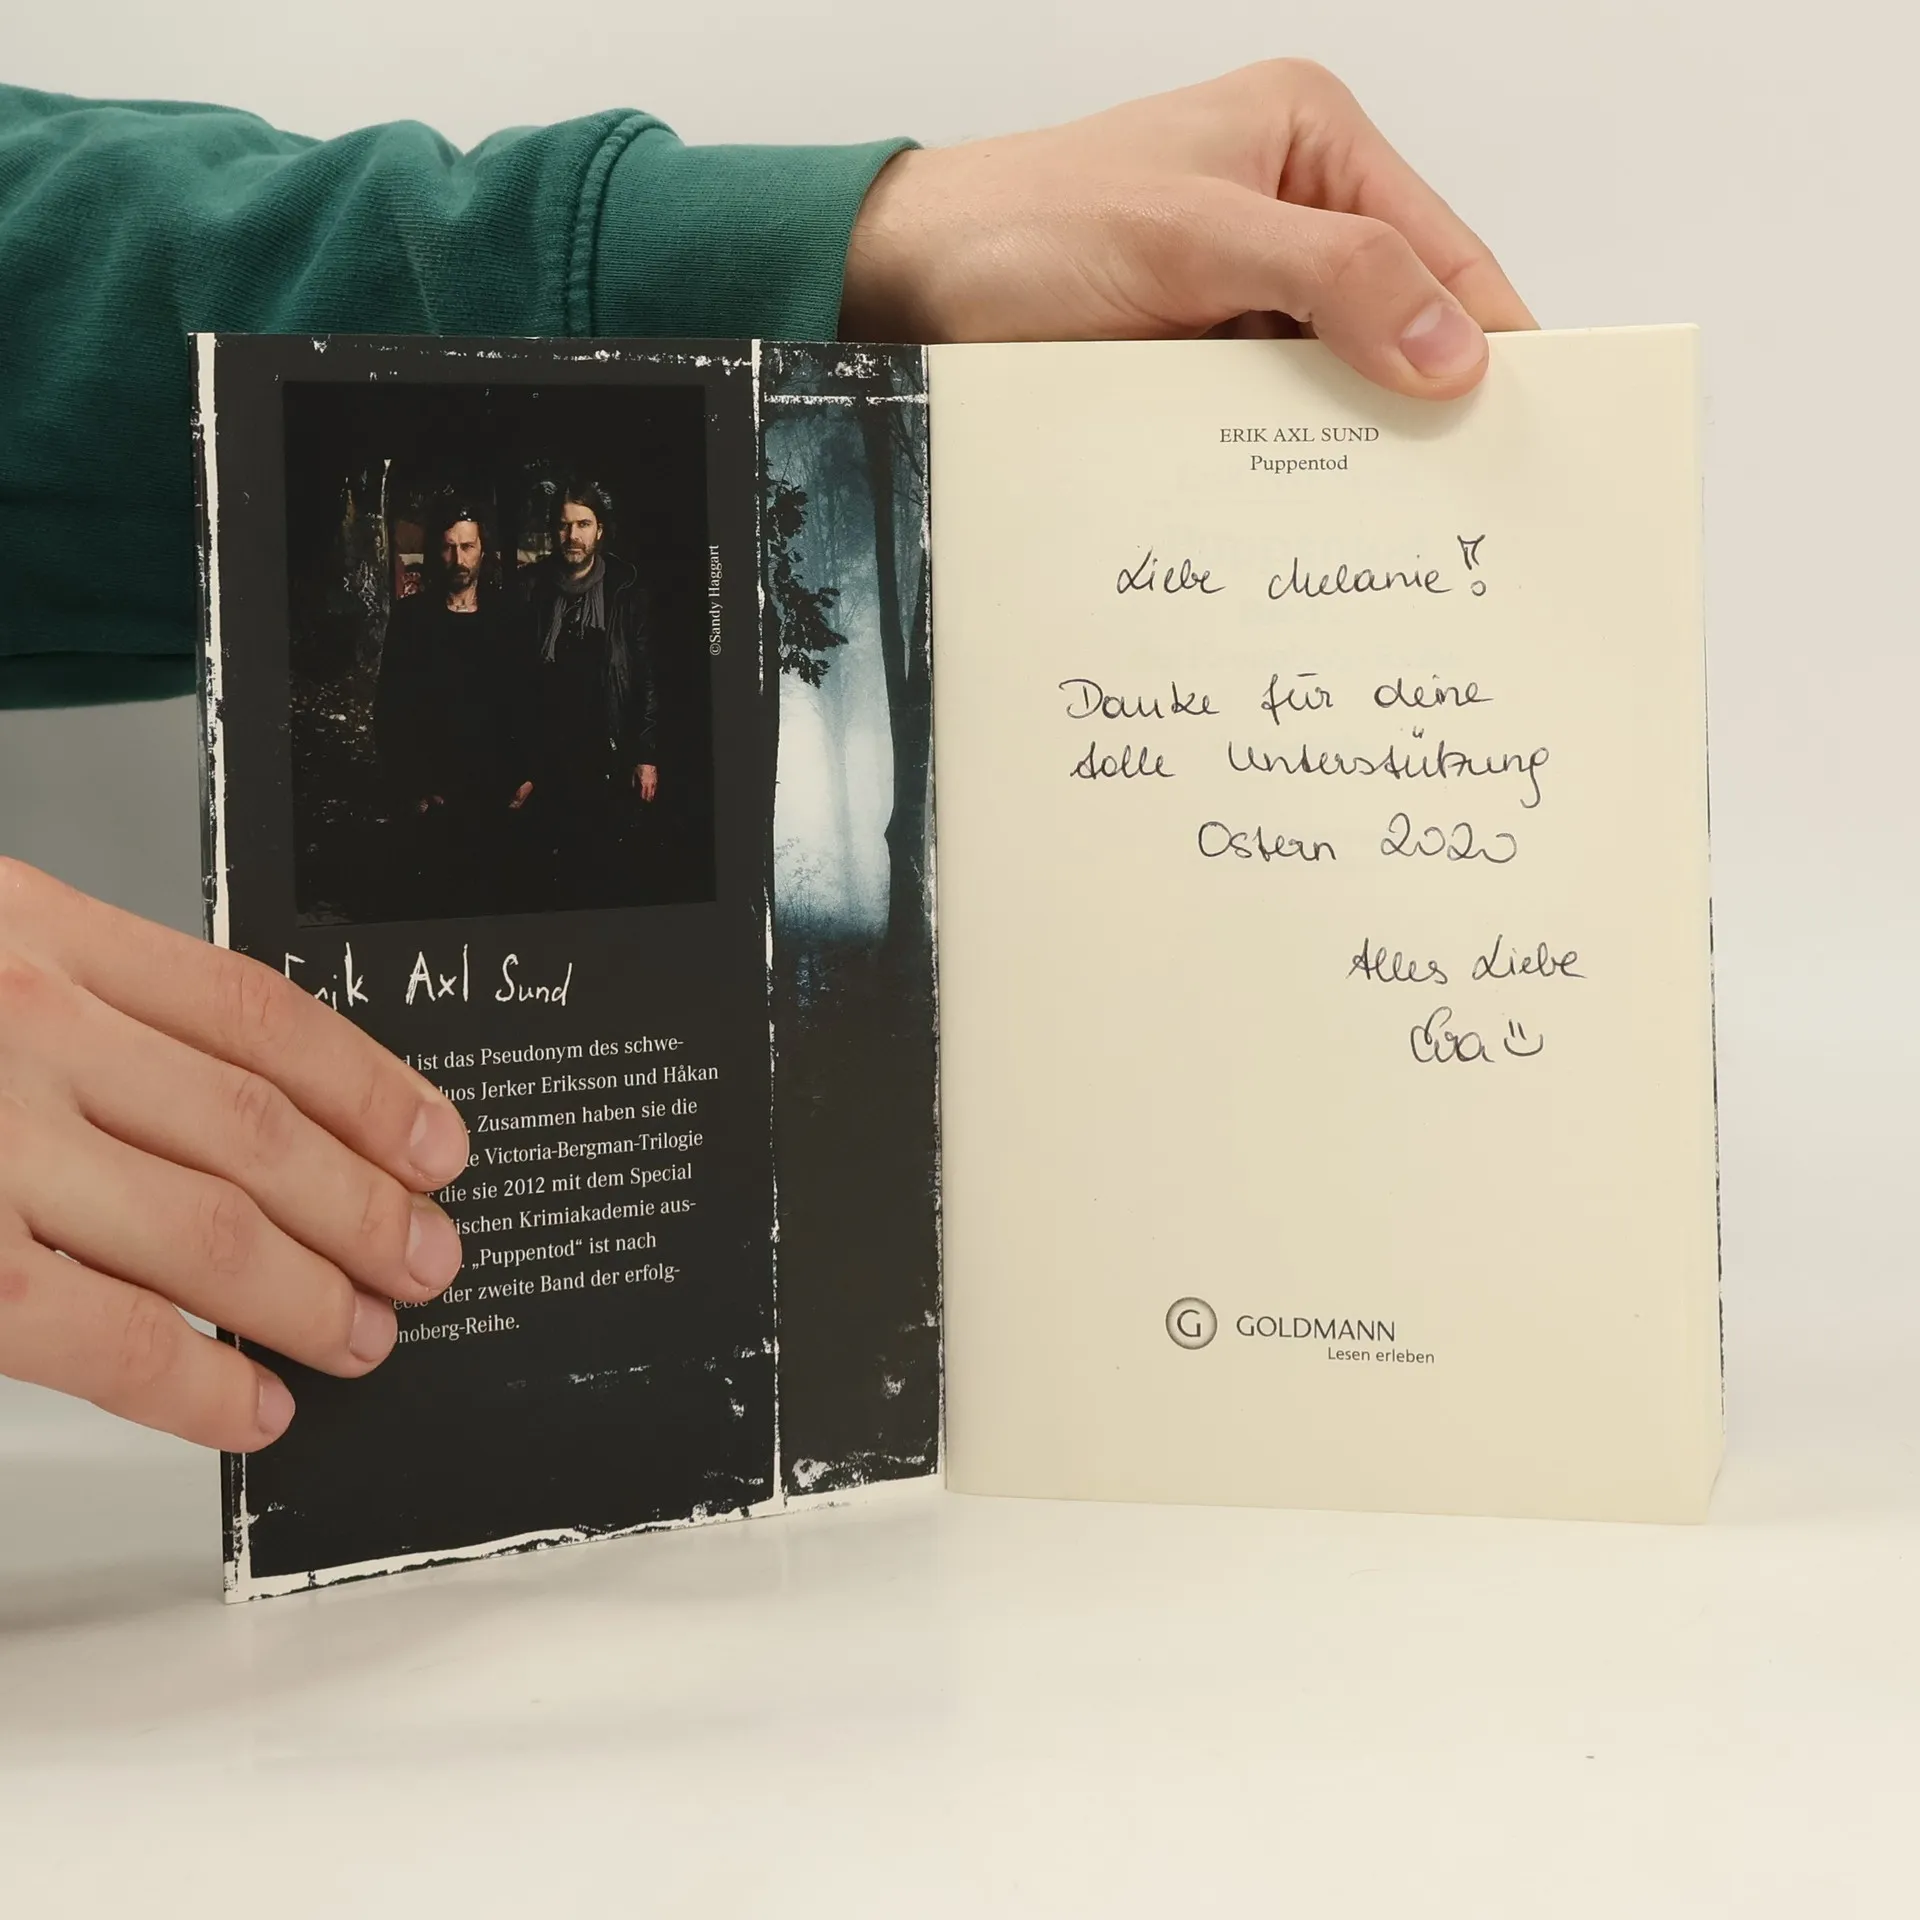 ©Sandy Haggart
Erik Axl Sund
ist das Pseudonym des schwe-
Jerker Eriksson und Håkan
. Zusammen haben sie die
Victoria-Bergman-Trilogie
die sie 2012 mit dem Special
ischen Krimiakademie aus-
. „Puppentod“ ist nach
der zweite Band der erfolg-
noberg-Reihe.
ERIK AXL SUND
Puppentod
Liebe Melanie!
Danke für deine
tolle Unterstützung
Ostern 2020
Alles Liebe
Eva
G GOLDMANN
Lesen erleben